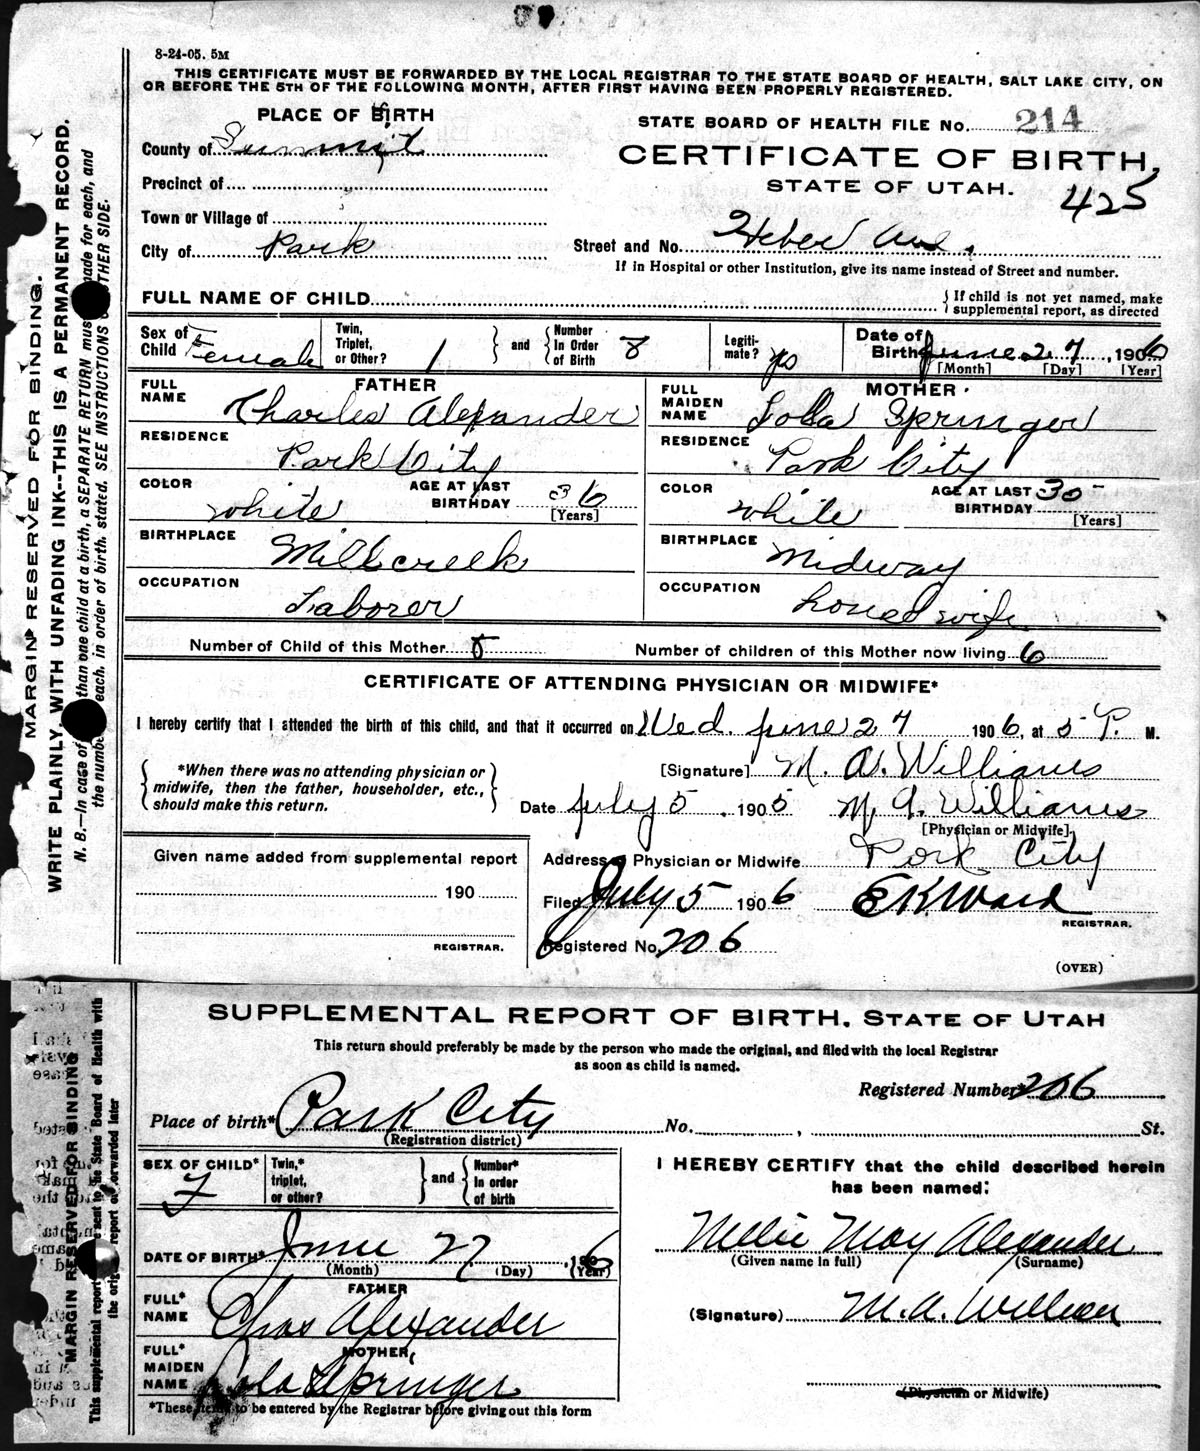 8-24-05. 5M
THIS CERTIFICATE MUST BE FORWARDED BY THE LOCAL REGISTRAR TO THE STATE BOARD OF HEALTH, SALT LAKE CITY, ON
OR BEFORE THE 5TH OF THE FOLLOWING MONTH, AFTER FIRST HAVING BEEN PROPERLY REGISTERED.
PLACE OF BIRTH
STATE BOARD OF HEALTH FILE No. 214
County of Summit
CERTIFICATE OF BIRTH,
Precinct of
STATE OF UTAH.
425
Town or Village of
City of Park
Street and No. Heber Ave.
If in Hospital or other Institution, give its name instead of Street and number.
FULL NAME OF CHILD
{ If child is not yet named, make
supplemental report, as directed
Sex of Child Female
Twin, Triplet, or Other? 1
and
Number In Order of Birth 8
Legiti-mate? yes
Date of Birth June 27, 1906
[Month] [Day] [Year]
FATHER
FULL NAME Charles Alexander
MOTHER
FULL MAIDEN NAME Lola Springer
RESIDENCE Park City
RESIDENCE Park City
COLOR white
AGE AT LAST BIRTHDAY 36
[Years]
COLOR white
AGE AT LAST BIRTHDAY 30
[Years]
BIRTHPLACE Millcreek
BIRTHPLACE Midway
OCCUPATION Laborer
OCCUPATION housewife
Number of Child of this Mother
Number of children of this Mother now living 6
CERTIFICATE OF ATTENDING PHYSICIAN OR MIDWIFE*
I hereby certify that I attended the birth of this child, and that it occurred on Wed. June 27 1906, at 5 P. M.
*When there was no attending physician or
midwife, then the father, householder, etc.,
should make this return.
[Signature] M. A. Williams
Date July 5, 1905 M. A. Williams
[Physician or Midwife].
Given name added from supplemental report
190
REGISTRAR.
Address Physician or Midwife Park City
Filed July 5 1906 E K Ward
REGISTRAR.
Registered No. 206
(OVER)
MARGIN RESERVED FOR BINDING.
WRITE PLAINLY, WITH UNFADING INK--THIS IS A PERMANENT RECORD.
N. B.—In case of than one child at a birth, a SEPARATE RETURN must made for each, and
the number each, in order of birth, stated. SEE INSTRUCTIONS OTHER SIDE.
SUPPLEMENTAL REPORT OF BIRTH. STATE OF UTAH
This return should preferably be made by the person who made the original, and filed with the local Registrar
as soon as child is named.
Registered Number* 206
Place of birth* Park City No. , St.
(Registration district)
SEX OF CHILD* F
Twin,* triplet, or other?
and
Number* In order of birth
I HEREBY CERTIFY that the child described herein
has been named:
DATE OF BIRTH* June 27, 1906
(Month) (Day) (Year)
Nellie May Alexander
(Given name in full) (Surname)
FATHER
FULL* NAME Chas Alexander
(Signature) M. A. Williams
MOTHER
FULL* MAIDEN NAME Lola Springer
(Physician or Midwife)
*These to be entered by the Registrar before giving out this form
MARGIN RESERVED FOR BINDING
This supplemental report sent to the State Board of Health with
the orig report forwarded later